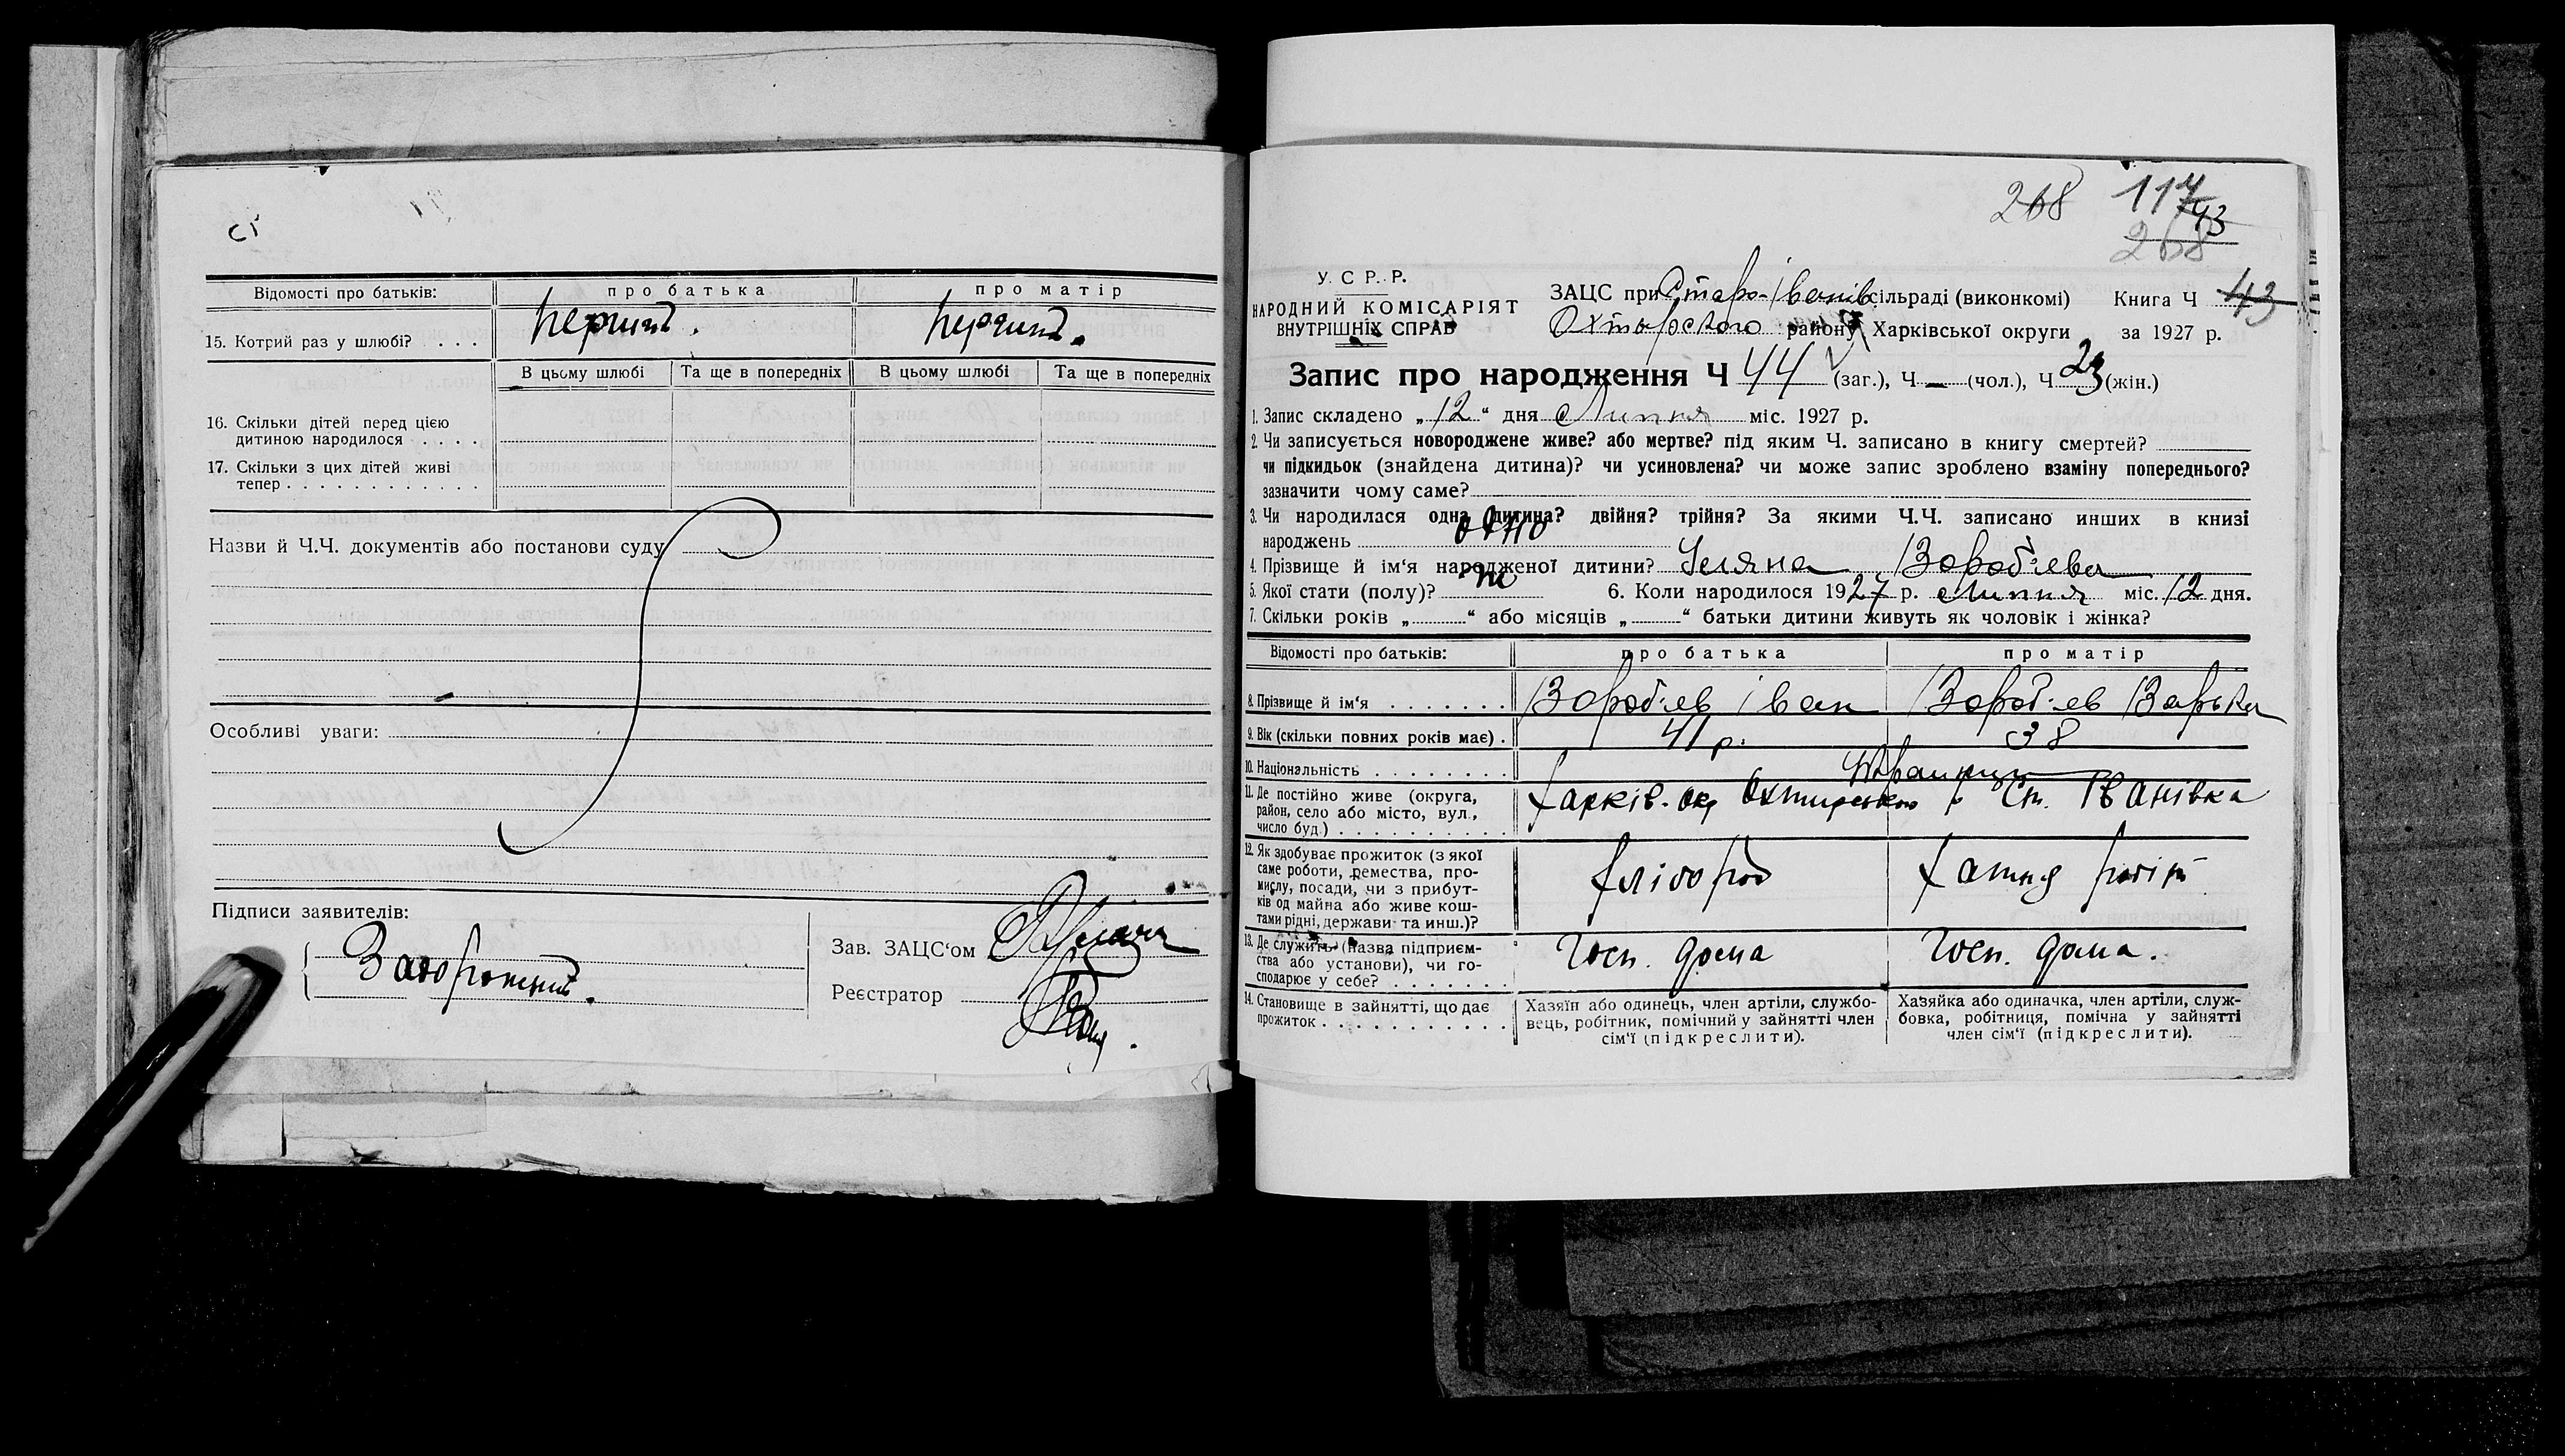 Відомості про батьків: про батька про матір
15. Котрий раз у шлюбі? . . . перший. перший.
В цьому шлюбі Та ще в попередніх В цьому шлюбі Та ще в попередніх
16. Скільки дітей перед цією
дитиною народилося . . . .
17. Скільки з цих дітей живі
тепер . . . . . . . . . . . .
Назви й Ч.Ч. документів або постанови суду
Особливі уваги:
Підписи заявителів:
Зав. ЗАЦС'ом
Реєстратор
268 117
43
268
У. С. Р. Р.
НАРОДНИЙ КОМІСАРІЯТ
ВНУТРІШНІХ СПРАВ
ЗАЦС при Старо-Іванів сільраді (виконкомі) Книга Ч 43
Охтирского району Харківської округи за 1927 р.
Запис про народження Ч 44 (заг.), Ч — (чол.), Ч 23 (жін.)
1. Запис складено „12“ дня Липня міс. 1927 р.
2. Чи записується новороджене живе? або мертве? під яким Ч. записано в книгу смертей?
чи підкидьок (знайдена дитина)? чи усиновлена? чи може запис зроблено взаміну попереднього?
зазначити чому саме?
3. Чи народилася одна дитина? двійня? трійня? За якими Ч.Ч. записано инших в книзі
народжень одно
4. Прізвище й ім'я народженої дитини? Уляна Вороб'єва
5. Якої стати (полу)? ж 6. Коли народилося 1927 р. Липня міс. 12 дня.
7. Скільки років „ “ або місяців „ “ батьки дитини живуть як чоловік і жінка?
Відомості про батьків: про батька про матір
8. Прізвище й ім'я . . . . . . . Вороб'ев Іван Вороб'ев Варька
9. Вік (скільки повних років має) . 41 р. 38
10. Національність . . . . . . . . Українци
11. Де постійно живе (округа,
район, село або місто, вул.,
число буд.) . . . . . . . . . . Харків. окр Охтирського р Ст. Іванівка
12. Як здобуває прожиток (з якої
саме роботи, ремества, про-
мислу, посади, чи з прибут-
ків од майна або живе кош-
тами рідні, держави та инш.)? Хлібороб Хатня робіт
13. Де служить (назва підприєм-
ства або установи), чи го-
сподарює у себе? . . . . . . . Госп. дома Госп. дома.
14. Становище в зайнятті, що дає
прожиток . . . . . . . . . . .
Хазяїн або одинець, член артіли, службо-
вець, робітник, помічний у зайнятті член
сім'ї (підкреслити).
Хазяйка або одиначка, член артіли, служ-
бовка, робітниця, помічна у зайнятті
член сім'ї (підкреслити).